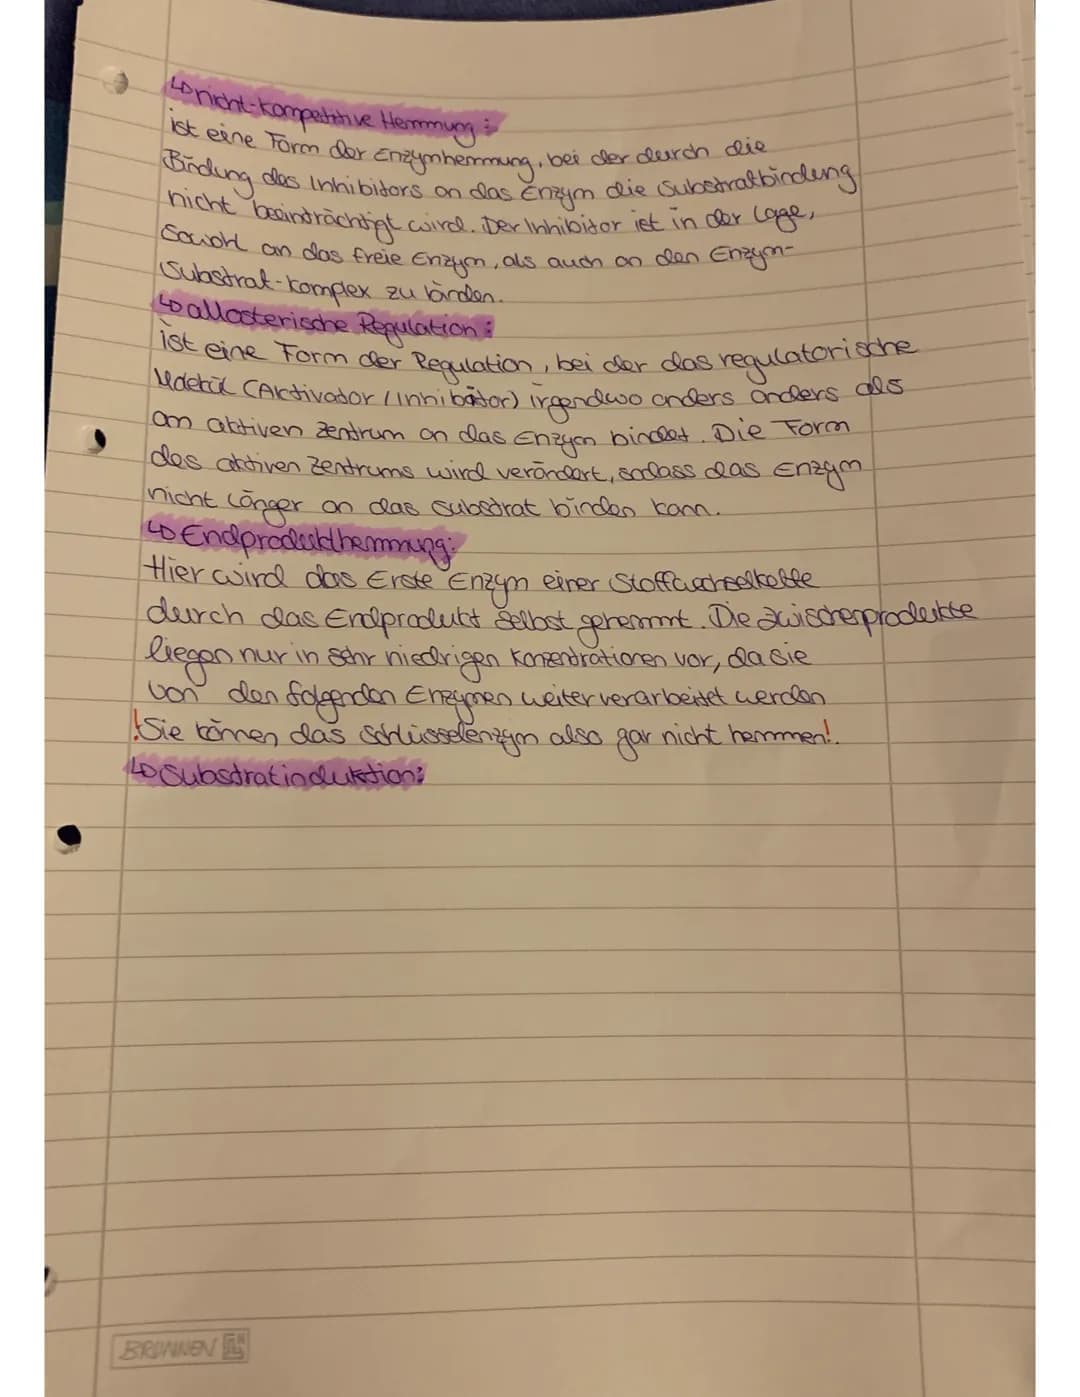 ↳ nicht-kompetitive Hemmung:
ist eine Form der Enzymhemmung, bei der durch die
Bindung des Inhibitors an das Enzym die Substratbindung
nicht beeinträchtigt wird. Der Inhibitor ist in der Lage,
sowohl an das freie Enzym, als auch an den Enzym-
Substrat-Komplex zu binden.
↳ allosterische Regulation:
ist eine Form der Regulation, bei der das regulatorische
(Aktivator / Inhibitor) irgendwo anders anders als
am aktiven Zentrum an das Enzym bindet. Die Form
des aktiven Zentrums wird verändert, sodass das Enzym
nicht länger an das Substrat binden kann.
↳ Endprodukthemmung:
Hier wird das Erste Enzym einer Stoffwechselkette
durch das Endprodukt selbst gehemmt. Die Zwischenprodukte
liegen nur in sehr niedrigen Konzentrationen vor, da sie
von den folgenden Enzymen weiterverarbeitet werden
! Sie können das Schlüsselenzym also gar nicht hemmen!.
↳ Substratinduktion:
BRUNNEN